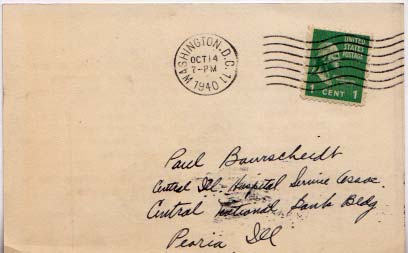 WASHINGTON, D.C. 11
OCT 14
7-PM
1940
UNITED
STATES
POSTAGE
1 CENT 1
Paul Bourscheidt
Central Ill. Hospital Service Assoc.
Central National Bank Bldg
Peoria Ill